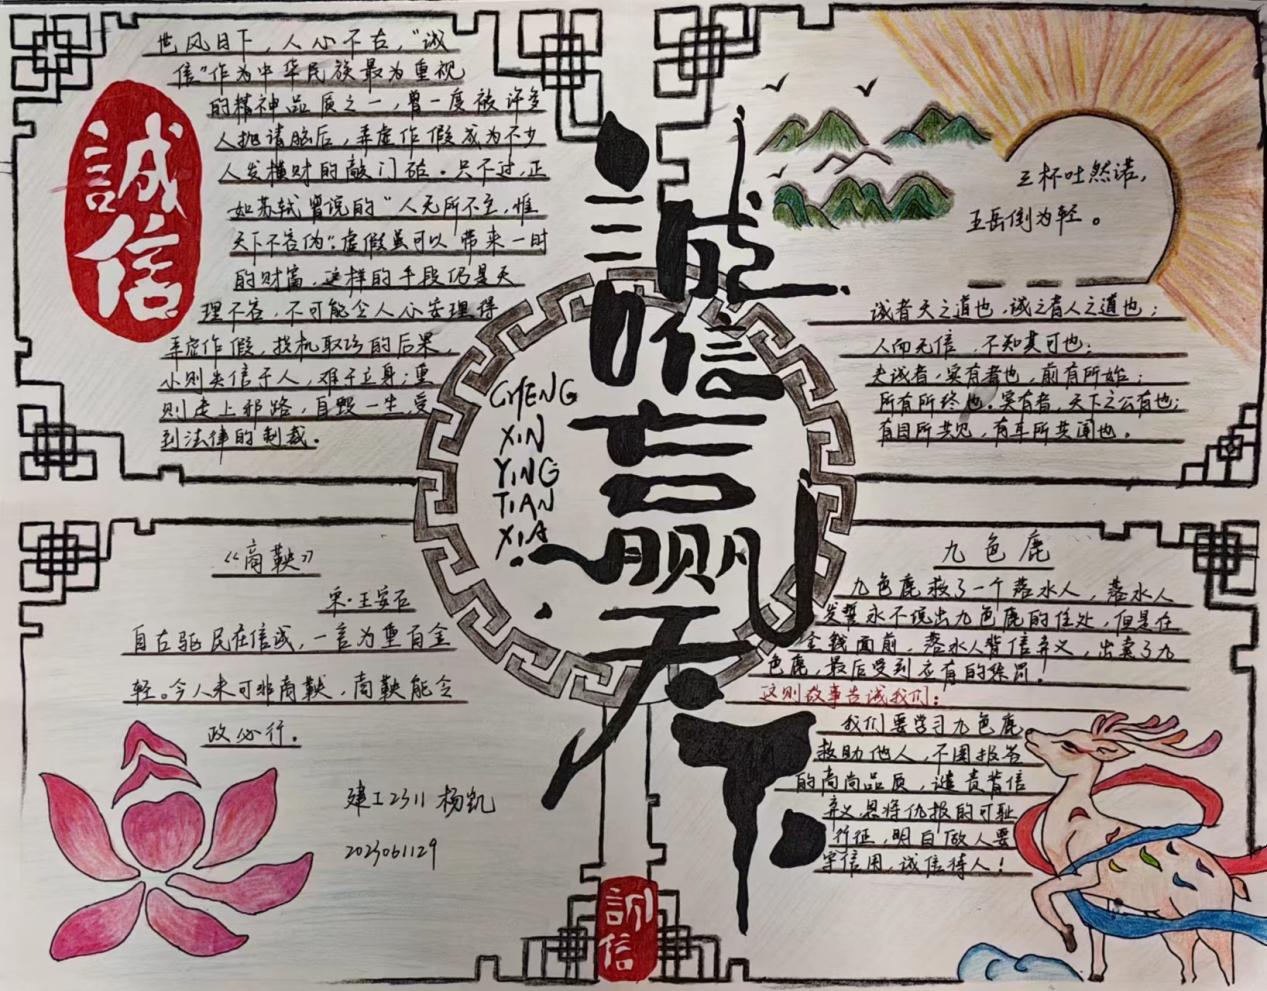 誠信
世风日下，人心不古，“诚
信”作为中华民族最为重视
的精神品质之一，曾一度被许多
人抛诸脑后，弄虚作假成为不少
人发横财的敲门砖。只不过，正
如苏轼曾说的“人无所不至，惟
天下不容伪”：虚假虽可以带来一时
的财富，这样的手段仍是天
理不容，不可能令人心安理得
弄虚作假，投机取巧的后果，
小则失信于人，难于立身；重
则走上邪路，自毁一生受
到法律的制裁。
誠信赢天下
CHENG
XIN
YING
TIAN
XIA
三杯吐然诺，
五岳倒为轻。
诚者天之道也，诚之者人之道也；
人而无信，不知其可也；
夫诚者，实有者也，前有所始；
所有所终也。实有者，天下之公有也；
有目所共见，有耳所共闻也。
《商鞅》
宋·王安石
自古驱民在信诚，一言为重百金
轻。今人未可非商鞅，商鞅能令
政必行。
建工2311 杨凯
2023061129
九色鹿
九色鹿救了一个落水人，落水人
发誓永不说出九色鹿的住处，但是在
金钱面前，落水人背信弃义，出卖了九
色鹿，最后受到应有的惩罚。
这则故事告诫我们：
我们要学习九色鹿
救助他人，不图报答
的高尚品质，谴责背信
弃义恩将仇报的可耻
行征，明白做人要
守信用，诚信待人！
訓信